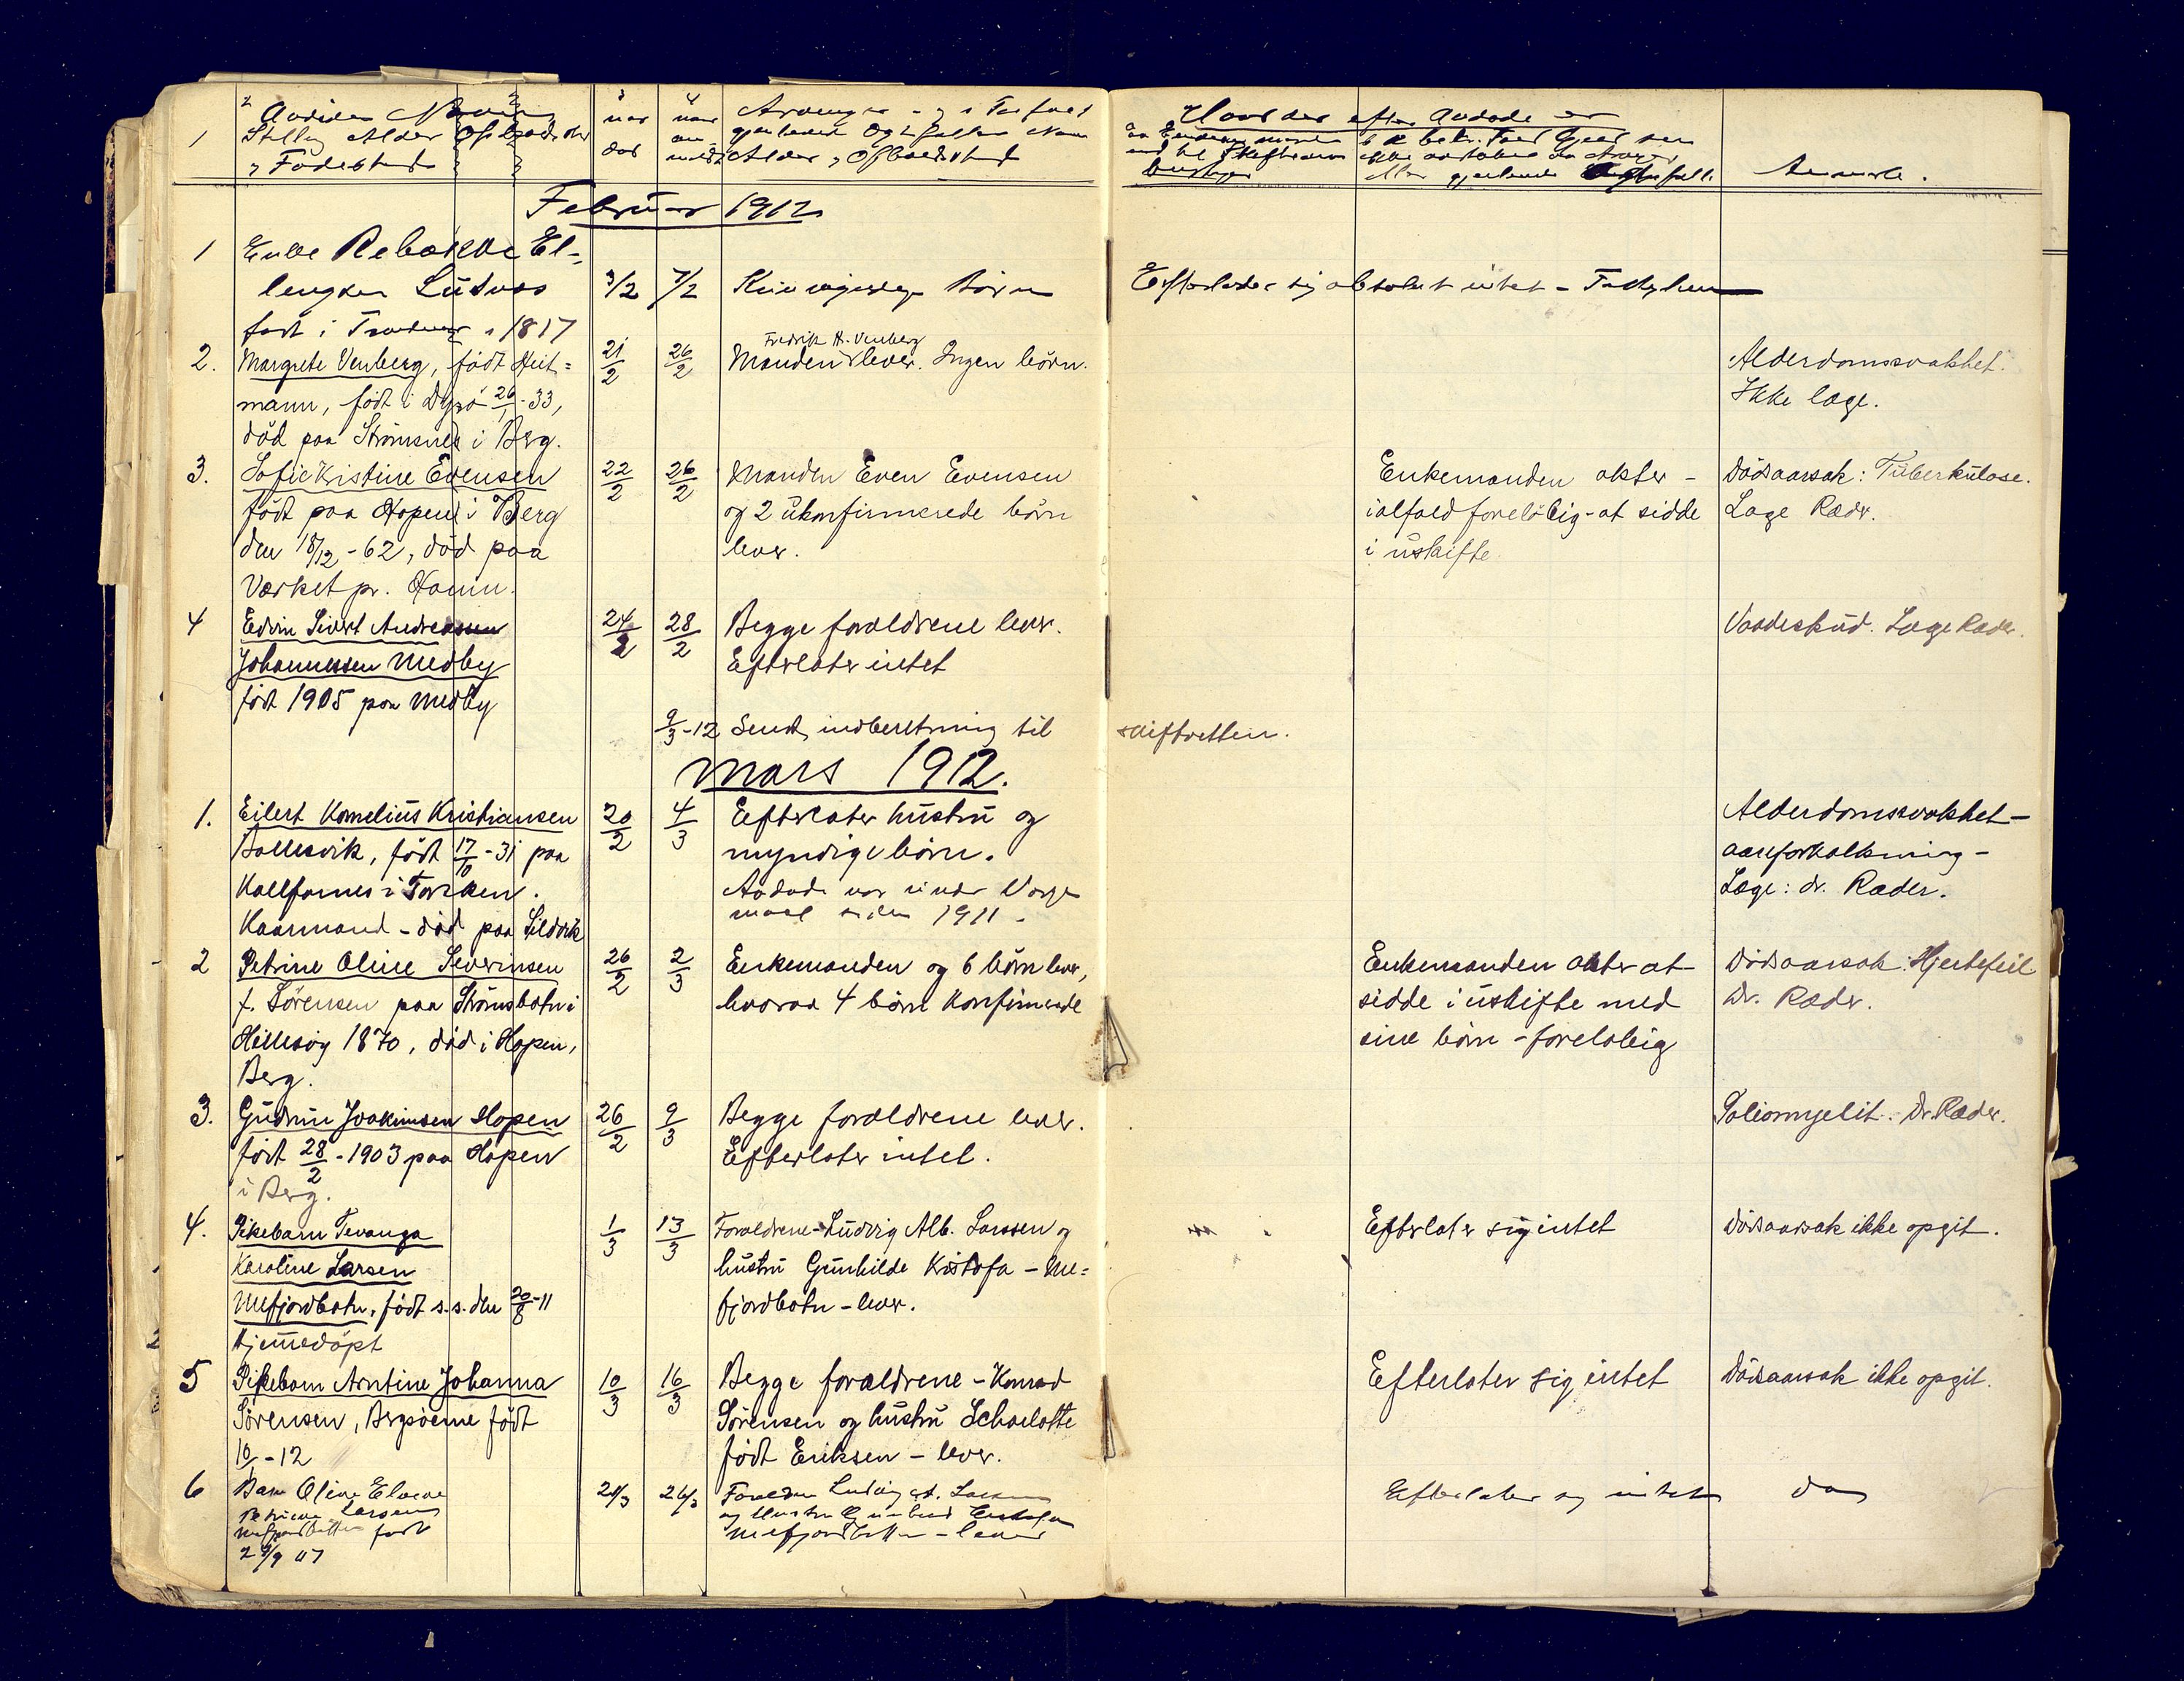 1
2
Navn
Stilling Alder Opholdssted
og Fødested
3
naar
død
4
naar
an-
meldt
Alder og Opholdssted
Hvorvidt der efter Avdøde er
Anmerk.
Februar 1912
1
Enke Rebække El-
lingsen
født i 1817
3/2
7/2
Kun myndige Børn
Efterlader sig absolut intet - Fattiglem
2.
Margrete Venberg, født Heit=
mann, født i Dyrö 26/1-33,
död paa Strömsnes i Berg.
21/2
26/2
Fredrik H. Venberg
Manden lever. Ingen börn.
Alderdomssvakhet.
Ikke læge.
3.
Sofie Kristine Evensen
födt paa Hopen i Berg
den 18/12-62, död paa
Værket pr. Hamn.
22/2
26/2
Manden Even Evensen
og 2 ukonfirmerede börn
lever.
Enkemanden akter -
ialfald forelöbig - at sidde
i uskifte
Dödsaarsak: Tüberkülose.
Læge Ræder.
4
Edvin Sivert Andreassen
Johannessen Medby
födt 1905 paa Medby
24/2
28/2
Begge forældrene lever.
Efterlater intet
Vaadeskud. Læge Ræder.
9/3-12 Sendt indberetning til skifteretten.
Mars 1912.
1.
Eilert Kornelius Kristiansen
Ballesvik, födt 17/10-31 paa
Kaldfarnes i Torsken.
Kaarmand - död paa Sildvik
20/2
4/3
Efterlater hustru og
myndige börn.
Avdøde var under Verge
maal siden 1911.
Alderdomssvakhet -
aareforkalkning -
Læge: dr. Ræder.
2
Petrine Oline Severinsen
f. Sörensen paa Strömsbotn i
Hillesöy 1870, död i Hopen,
Berg.
26/2
2/3
Enkemanden og 6 börn lever,
hvorav 4 börn konfirmerede
Enkemanden akter at
sidde i uskifte med
sine börn - forelöbig
Dödsaarsak: Hjertefeil
Dr. Ræder.
3.
Gudrun Joakimsen Hopen
födt 28/2-1903 paa Hopen
i Berg.
26/2
9/3
Begge forældrene lever.
Efterlater intet.
Poliomyelit. Dr. Ræder.
4.
Pikebarn Tevanga
Karoline Larsen
Mefjordbotn, födt s.s. den 20/8-11
hjemmedöpt
1/3
13/3
Forældrene - Ludvig Alb. Larssen og
hustru Gunhilde Kristofa - Me=
fjordbotn - lever.
Efterlater sig intet
Dödsaarsak ikke opgit.
5
Pikebarn Arntine Johanna
Sörensen, Bergsöerne födt
10/1-12
10/3
16/3
Begge forældrene - Konrad
Sörensen og hustru Scharlotte
födt Eriksen - lever.
Efterlater sig intet
Dödsaarsak ikke opgit.
6
Barn Oline Elvine
Petrine Larsen
Mefjordbotten født
29/9 07
21/3
26/3
Forældre Ludvig A. Larsen
og Hustru Gunhild Kristofa
Mefjordbotten - lever
Efterlater sig intet
do